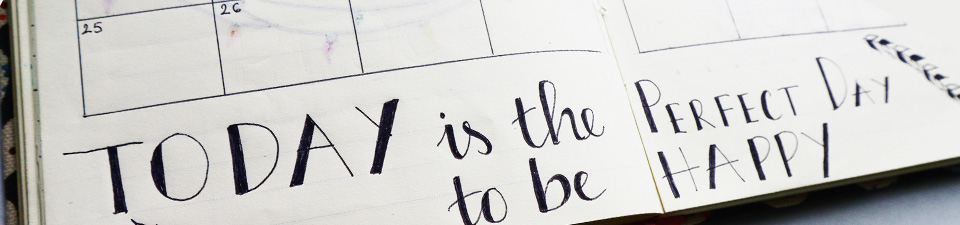 25 26
TODAY is the PERFECT DAY
to be HAPPY